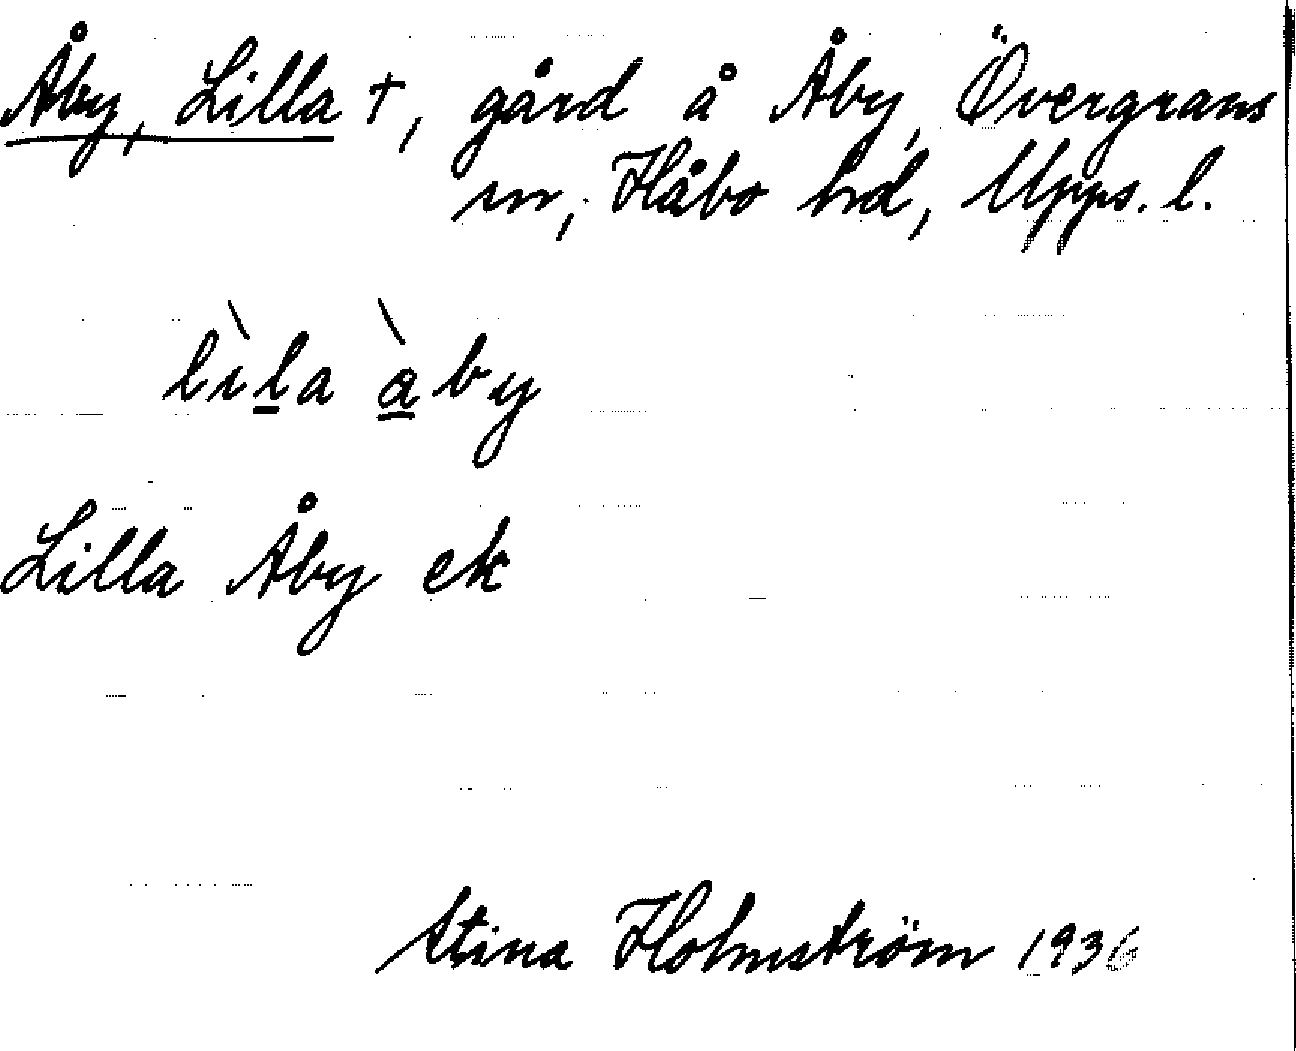 Åby, Lilla †, gård å Åby, Övergrans
sn, Håbo hd, Upps. l.
lìla àby
Lilla Åby ek
Stina Holmström 1936